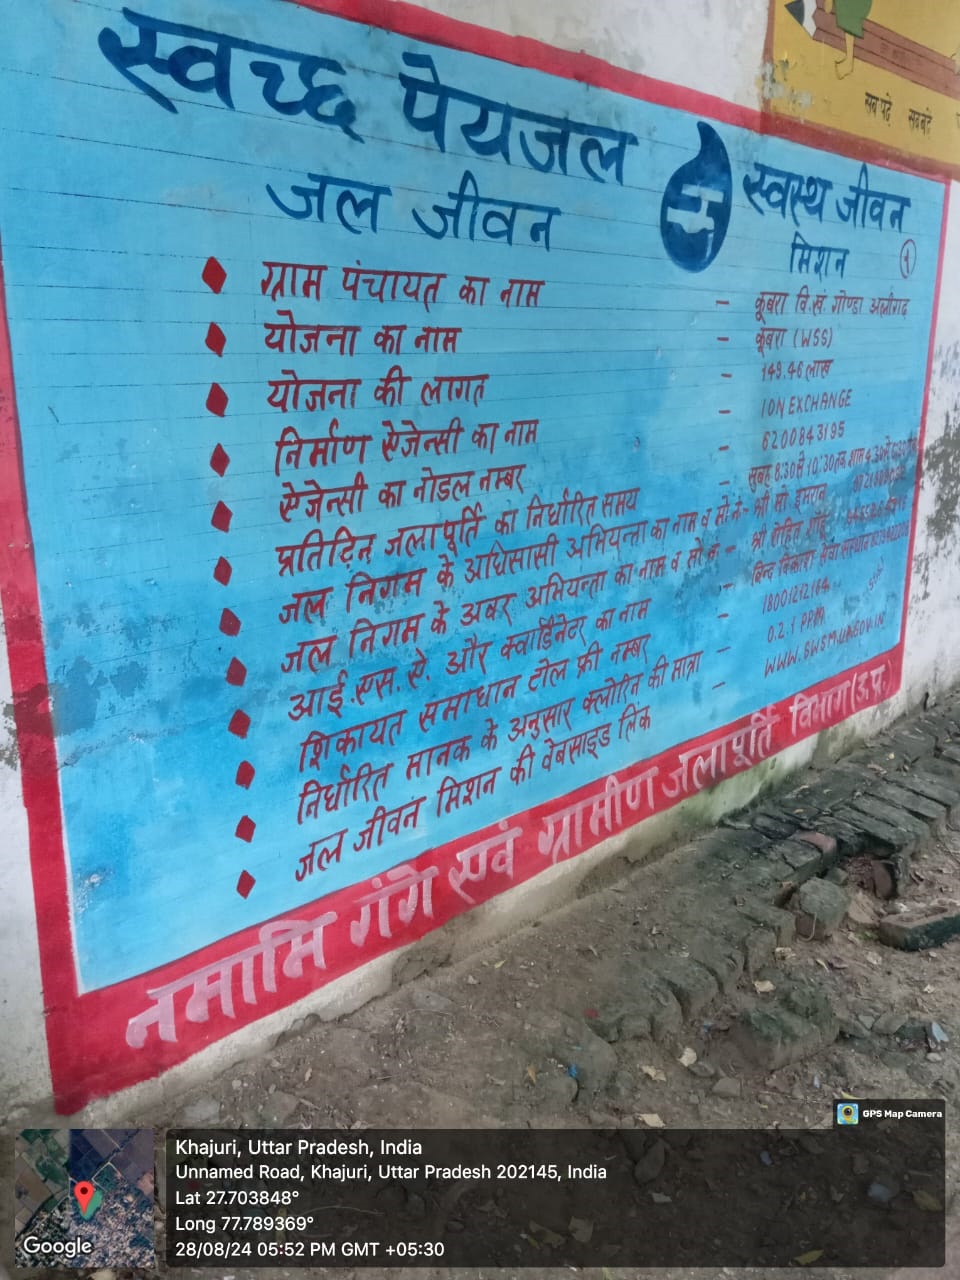 सब पढ़े सब बढ़े
स्वच्छ पेयजल स्वस्थ जीवन
जल जीवन मिशन
१
ग्राम पंचायत का नाम – कूबरा वि.खं. गोण्डा अलीगढ़
योजना का नाम – कूबरा (WSS)
योजना की लागत – 149.46 लाख
निर्माण ऐजेन्सी का नाम – ION EXCHANGE
ऐजेन्सी का नोडल नम्बर – 6200843195
प्रतिदिन जलापूर्ति का निर्धारित समय – सुबह 8.30 से 10.30 तक शाम
जल निगम के अधिसासी अभियन्ता का नाम व मो.नं. – श्री मो. इमरान
जल निगम के अवर अभियन्ता का नाम व मो. नं. – श्री रोहित
आई.एस.ए. और क्वार्डिनेटर का नाम –
शिकायत समाधान टोल फ्री नम्बर – 18001212164
निर्धारित मानक के अनुसार क्लोरिन की मात्रा – 0.2.1 PPM
जल जीवन मिशन की वेबसाइड लिंक –
नमामि गंगे एवं ग्रामीण जलापूर्ति विभाग (उ.प्र.)
GPS Map Camera
Khajuri, Uttar Pradesh, India
Unnamed Road, Khajuri, Uttar Pradesh 202145, India
Lat 27.703848°
Long 77.789369°
28/08/24 05:52 PM GMT +05:30
Google